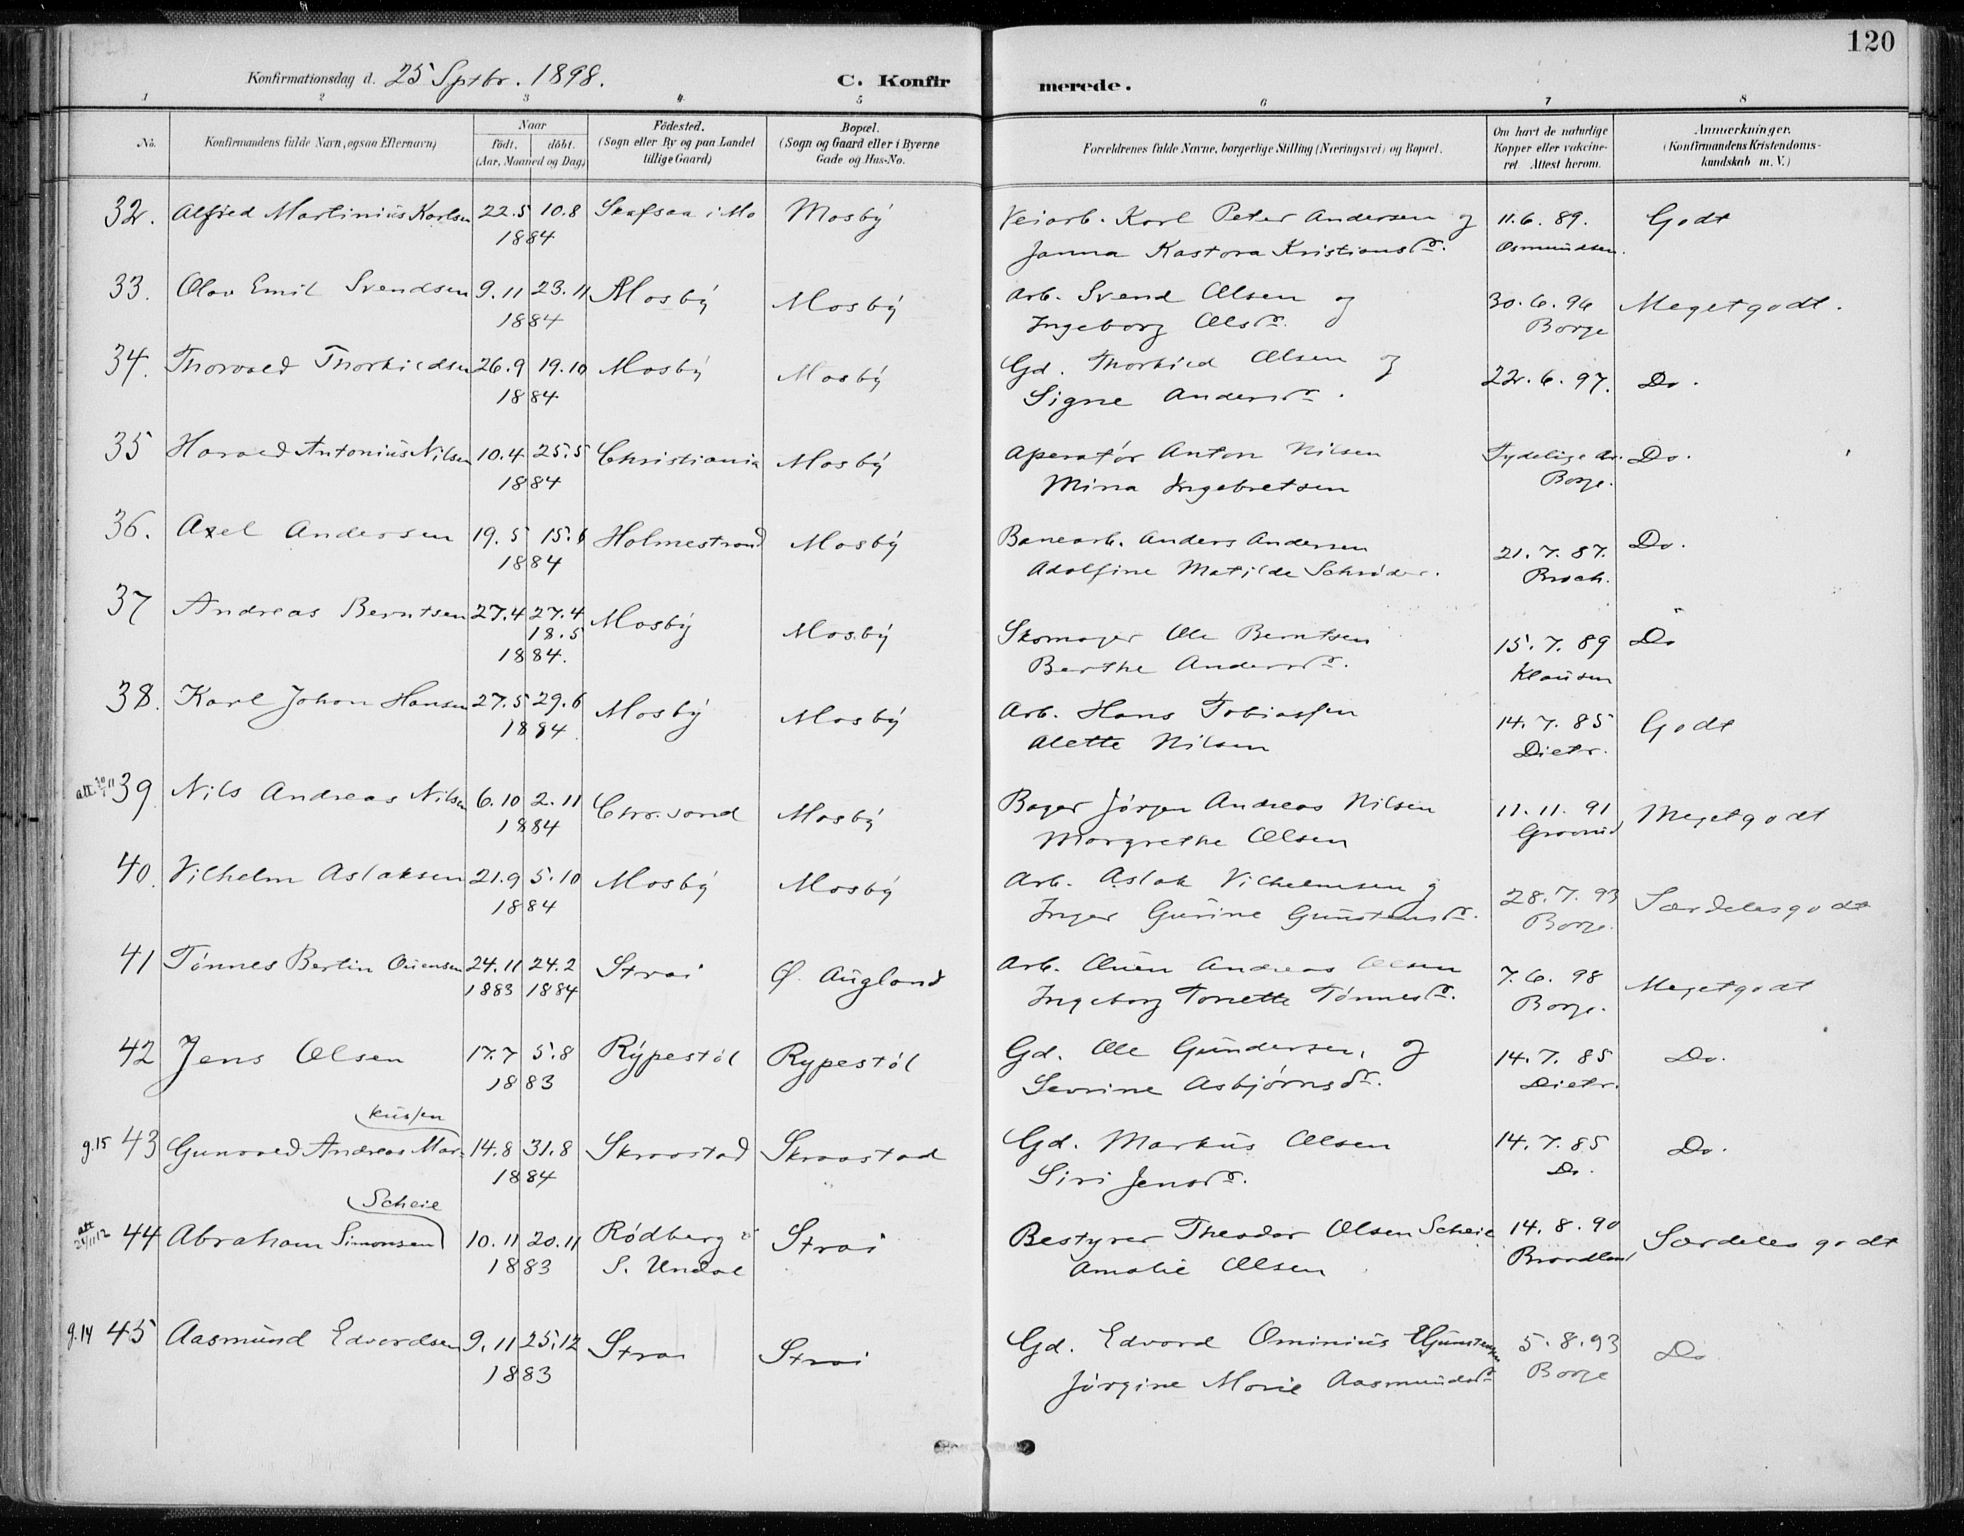 120
Konfirmationsdag d. 25 Sptbr. 1898.
C. Konfirmerede.
1 2 3 4 5 6 7 8
No.
Konfirmandens fulde Navn, ogsaa Efternavn)
Naar
født. døbt.
(Aar, Maaned og Dag)
Fødested.
(Sogn eller By og paa Landet
tillige Gaard)
Bopæl.
(Sogn og Gaard eller i Byerne
Gade og Hus-No.
Forældrenes fulde Navne, borgerlige Stilling (Næringsvei) og Bopæl.
Om havt de naturlige
Kopper eller vakcine-
ret. Attest herom.
Anmærkninger.
(Konfirmandens Kristendoms-
kundskab m. V.)
32. Alfred Martinius Karlsen 22.5 10.8 Skafsaa i Mo Mosby Veiarb. Karl Peter Andersen og 11.6.89. Godt
1884 Janna Kastora Kristiansdr. Osmundsen.
33. Olav Emil Svendsen 9.11 23.11 Mosby Mosby Arb. Svend Olsen og 30.6.96 Meget godt.
1884 Ingeborg Olsdr. Borge
34. Thorvald Thorkildsen 26.9 19.10 Mosby Mosby Gd. Thorkild Olsen og 22.6.97. Do.
1884 Signe Andersdr.
35 Harald Antonius Nilsen 10.4 25.5 Christiania Mosby Operatør Anton Nilsen Tydelige Ar. Do.
1884 Mina Ingebretsen Borge.
36. Axel Andersen 19.5 15.6 Holmestrand Mosby Banearb. Anders Andersen 21.7.87. Do.
1884 Adolfine Matilde Schrøder. Broch.
37 Andreas Berntsen 27.4 27.4 Mosby Mosby Skomager Ole Berntsen 15.7.89 Do
18.5
1884. Berthe Andersdr. Klausen
38. Karl Johan Hansen 27.5 29.6 Mosby Mosby Arb. Hans Tobiassen 14.7.85 Godt
1884. Alette Nilsen Dietr.
att. 39 Nils Andreas Nilsen 6.10 2.11 Chr.sand Mosby Bager Jørgen Andreas Nilsen 11.11.91 Meget godt
1884 Margrethe Olsen
40. Vilhelm Aslaksen 21.9 5.10 Mosby Mosby Arb. Aslak Vilhelmsen og 28.7.93 Særdeles godt
1884 Inger Gurine Gunstensdr. Borge.
41 Tønnes Bertin Ouensen 24.11 24.2 Strai Ø. Augland Arb. Ouen Andreas Olsen 7.6.98 Meget godt
1883 1884 Ingeborg Tonette Tønnesdr. Borge.
42 Jens Olsen 17.7 5.8 Rypestøl Rypestøl Gd. Ole Gundersen, og 14.7.85 Do.
1883 Sevrine Asbjørnsdr. Dietr.
kussen
g.15 43 Gunvald Andreas Mar- 14.8 31.8 Skraastad Skraastad Gd. Markus Olsen 14.7.85 Do.
1884 Siri Jensdr. Do.
Scheie
att 44 Abraham Simonsen 10.11 20.11 Rødberg i Strai Bestyrer Theodor Olsen Scheie 14.8.90 Særdeles godt
1883 S. Undal Amalie Olsen
g.14 45 Aasmund Edvardsen 9.11 25.12 Strai Strai Gd. Edvard Ominius Gunstensen 5.8.93 Do
1883 Jørgine Marie Aasmundsdr Borge